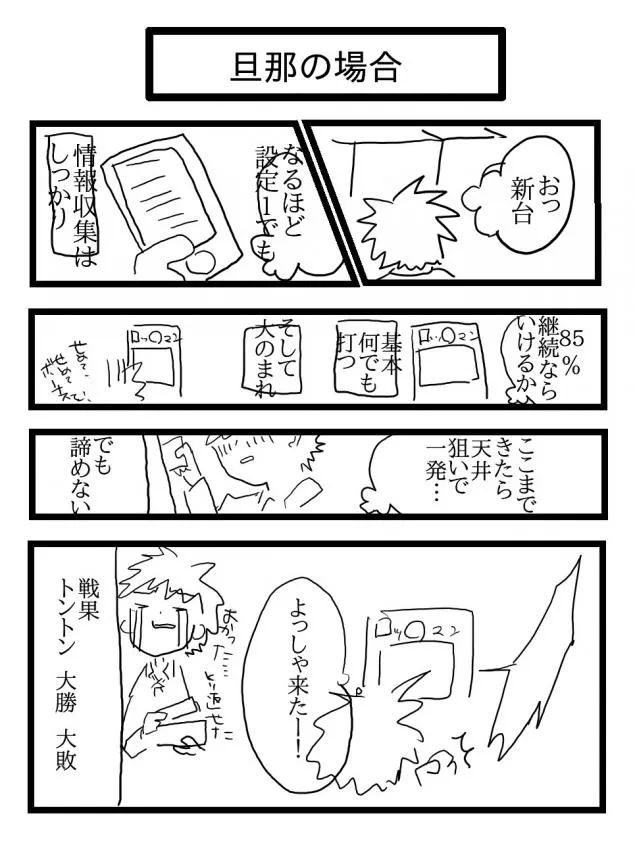 旦那の場合
おっ
新台
なるほど
設定1でも
情報収集は
しっかり
85%
継続なら
いけるか
ロッ〇マン
基本
何でも
打つ
そして
大のまれ
ロッ〇マン
せめて、
せめて
ボーナスで、
ここまで
きたら
天井
狙いで
一発…
でも
諦めない
ロッ〇マン
よっしゃ来たー!
よかった…
とり返せた
戦果
トントン 大勝 大敗